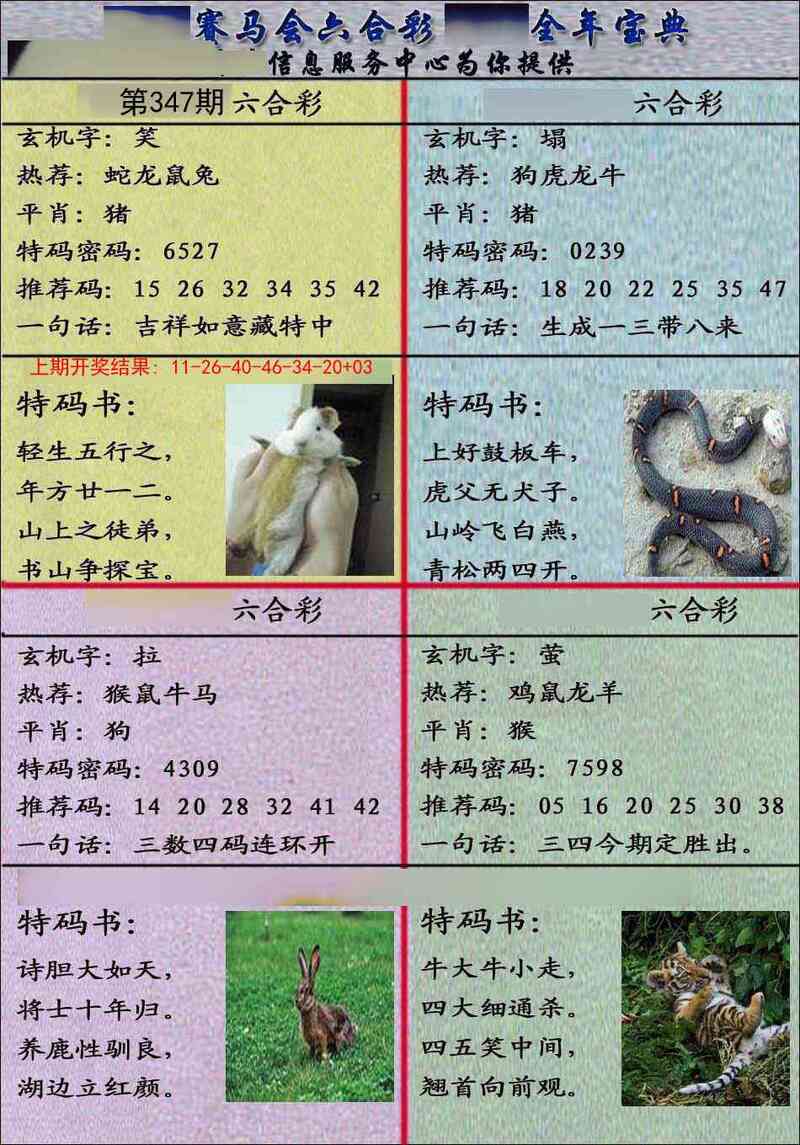 赛马会六合彩 全年宝典
信息服务中心为你提供
第347期 六合彩
玄机字：笑
热荐：蛇龙鼠兔
平肖：猪
特码密码：6527
推荐码：15 26 32 34 35 42
一句话：吉祥如意藏特中
上期开奖结果：11-26-40-46-34-20+03
特码书：
轻生五行之，
年方廿一二。
山上之徒弟，
书山争探宝。
六合彩
玄机字：塌
热荐：狗虎龙牛
平肖：猪
特码密码：0239
推荐码：18 20 22 25 35 47
一句话：生成一三带八来
特码书：
上好鼓板车，
虎父无犬子。
山岭飞白燕，
青松两四开。
六合彩
玄机字：拉
热荐：猴鼠牛马
平肖：狗
特码密码：4309
推荐码：14 20 28 32 41 42
一句话：三数四码连环开
特码书：
诗胆大如天，
将士十年归。
养鹿性驯良，
湖边立红颜。
六合彩
玄机字：萤
热荐：鸡鼠龙羊
平肖：猴
特码密码：7598
推荐码：05 16 20 25 30 38
一句话：三四今期定胜出。
特码书：
牛大牛小走，
四大细通杀。
四五笑中间，
翘首向前观。